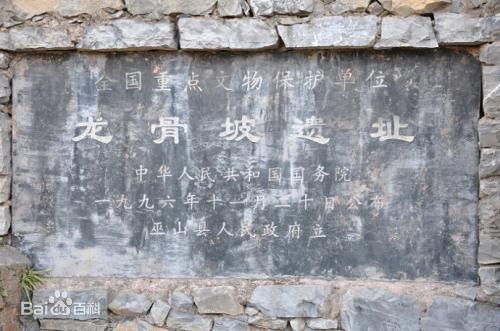 全国重点文物保护单位
龙骨坡遗址
中华人民共和国国务院
一九九六年十一月二十日公布
巫山县人民政府立
Bai百科